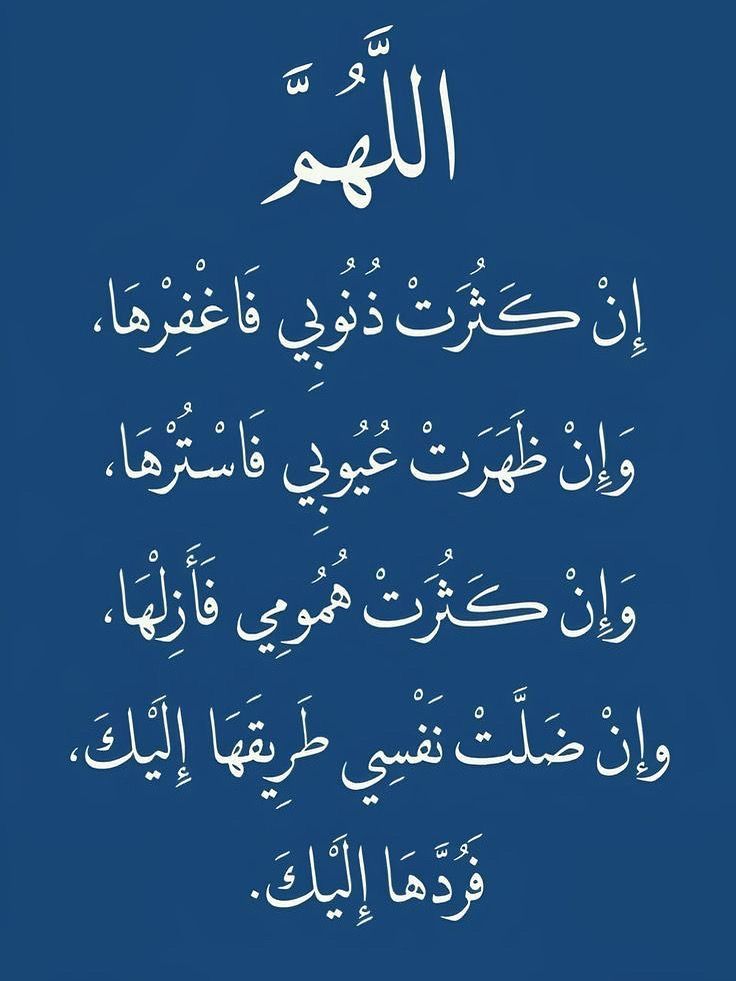 اللَّهُمَّ
إِنْ كَثُرَتْ ذُنُوبِي فَاغْفِرْهَا،
وَإِنْ ظَهَرَتْ عُيُوبِي فَاسْتُرْهَا،
وَإِنْ كَثُرَتْ هُمُومِي فَأَزِلْهَا،
وإِنْ ضَلَّتْ نَفْسِي طَرِيقَهَا إِلَيْكَ،
فَرُدَّهَا إِلَيْكَ.